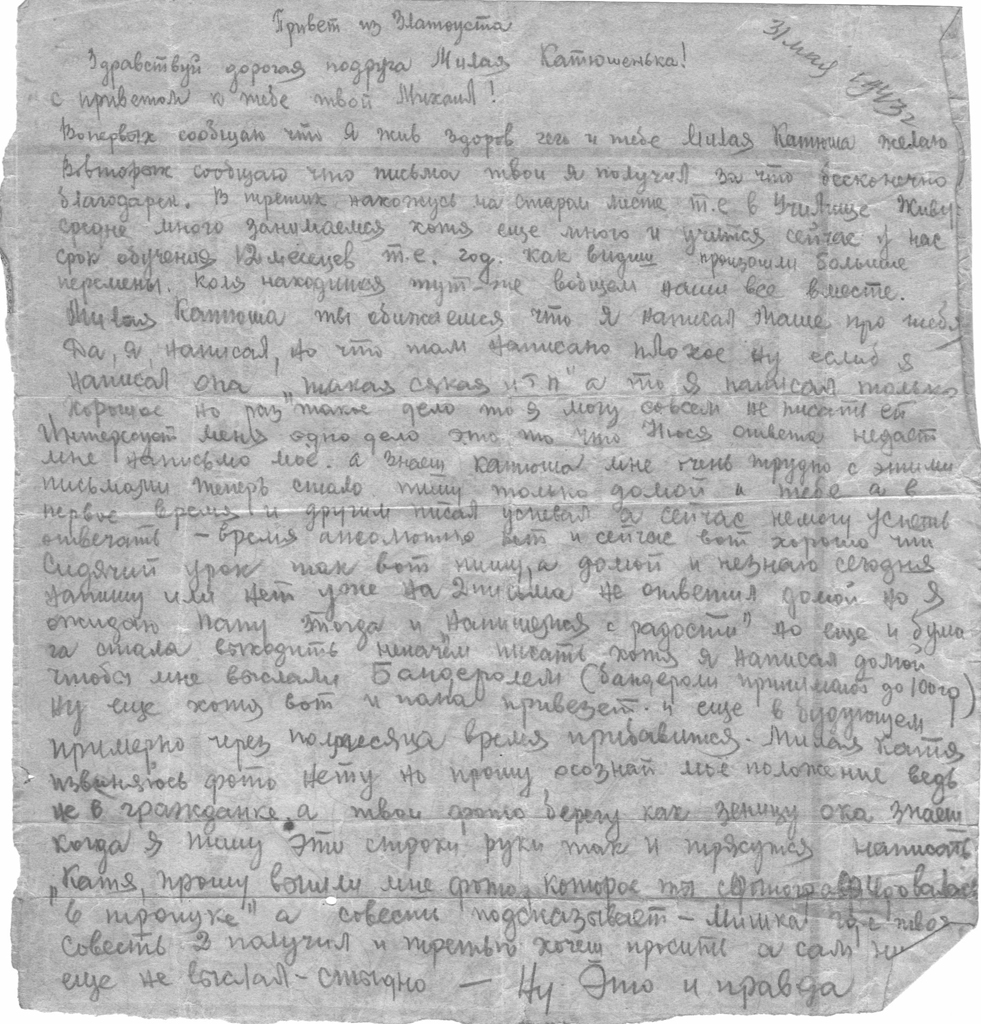 Привет из Златоуста
31 мая 1943 г
Здравствуй дорогая подруга Милая Катюшенька!
с приветом к тебе твой Михаил!
Вопервых сообщаю что я жив здоров чего и тебе Милая Катюша желаю
Вовторых сообщаю что письма твои я получил за что бесконечно
благодарен. В третих нахожусь на старом месте т.е в Училище Живу
средне много занимаемся хотя еще много и учится сейчас у нас
срок обучения 12 месецев т.е. год. как видиш произошли большие
перемены. Коля находится тут-же вобщем наши все вместе.
Милая Катюша ты обижаешся что я написал Маше про тебя
Да, я написал, но что там написано плохое ну еслиб я
написал она "такая сякая и т п" а то я написал только
хорошое но раз такое дело то я могу совсем не писать ей
Интересует меня одно дело это то что Тюся ответа недает
мне написьмо мое. а знаеш катюша мне очень трудно с этими
письмами теперь стало пишу только домой и тебе а в
первое время и другим писал успевал а сейчас немогу успеть
отвечать – время апсолютно нет и сейчас вот хорошо что
Сидячий урок так вот пишу, а домой и незнаю сегодня
напишу или нет уже на 2 письма не ответил домой но я
ожидаю папу тогда и "напишемся с радости" но еще и бума
га стала выходить неначем писать хотя я написал домой
чтобы мне выслали Бандеролем (бандероли принимают до 100 гр)
Ну еще хотя вот и папа привезет. и еще в будующем
примерно через полмесяца время прибавится. Милая Катя
извиняюсь фото нету но прошу осознай мое положение ведь
не в гражданке, а твои фото берегу как зеницу ока знаеш
когда я пишу эти строки руки так и трясутся написать
"Катя, прошу вышли мне фото, которое ты
в тропуке" а совесть подсказывает – Мишка где твоя
Совесть 2 получил и третью хочеш просить а сам
еще не выслал – стыдно – Ну Это и правда